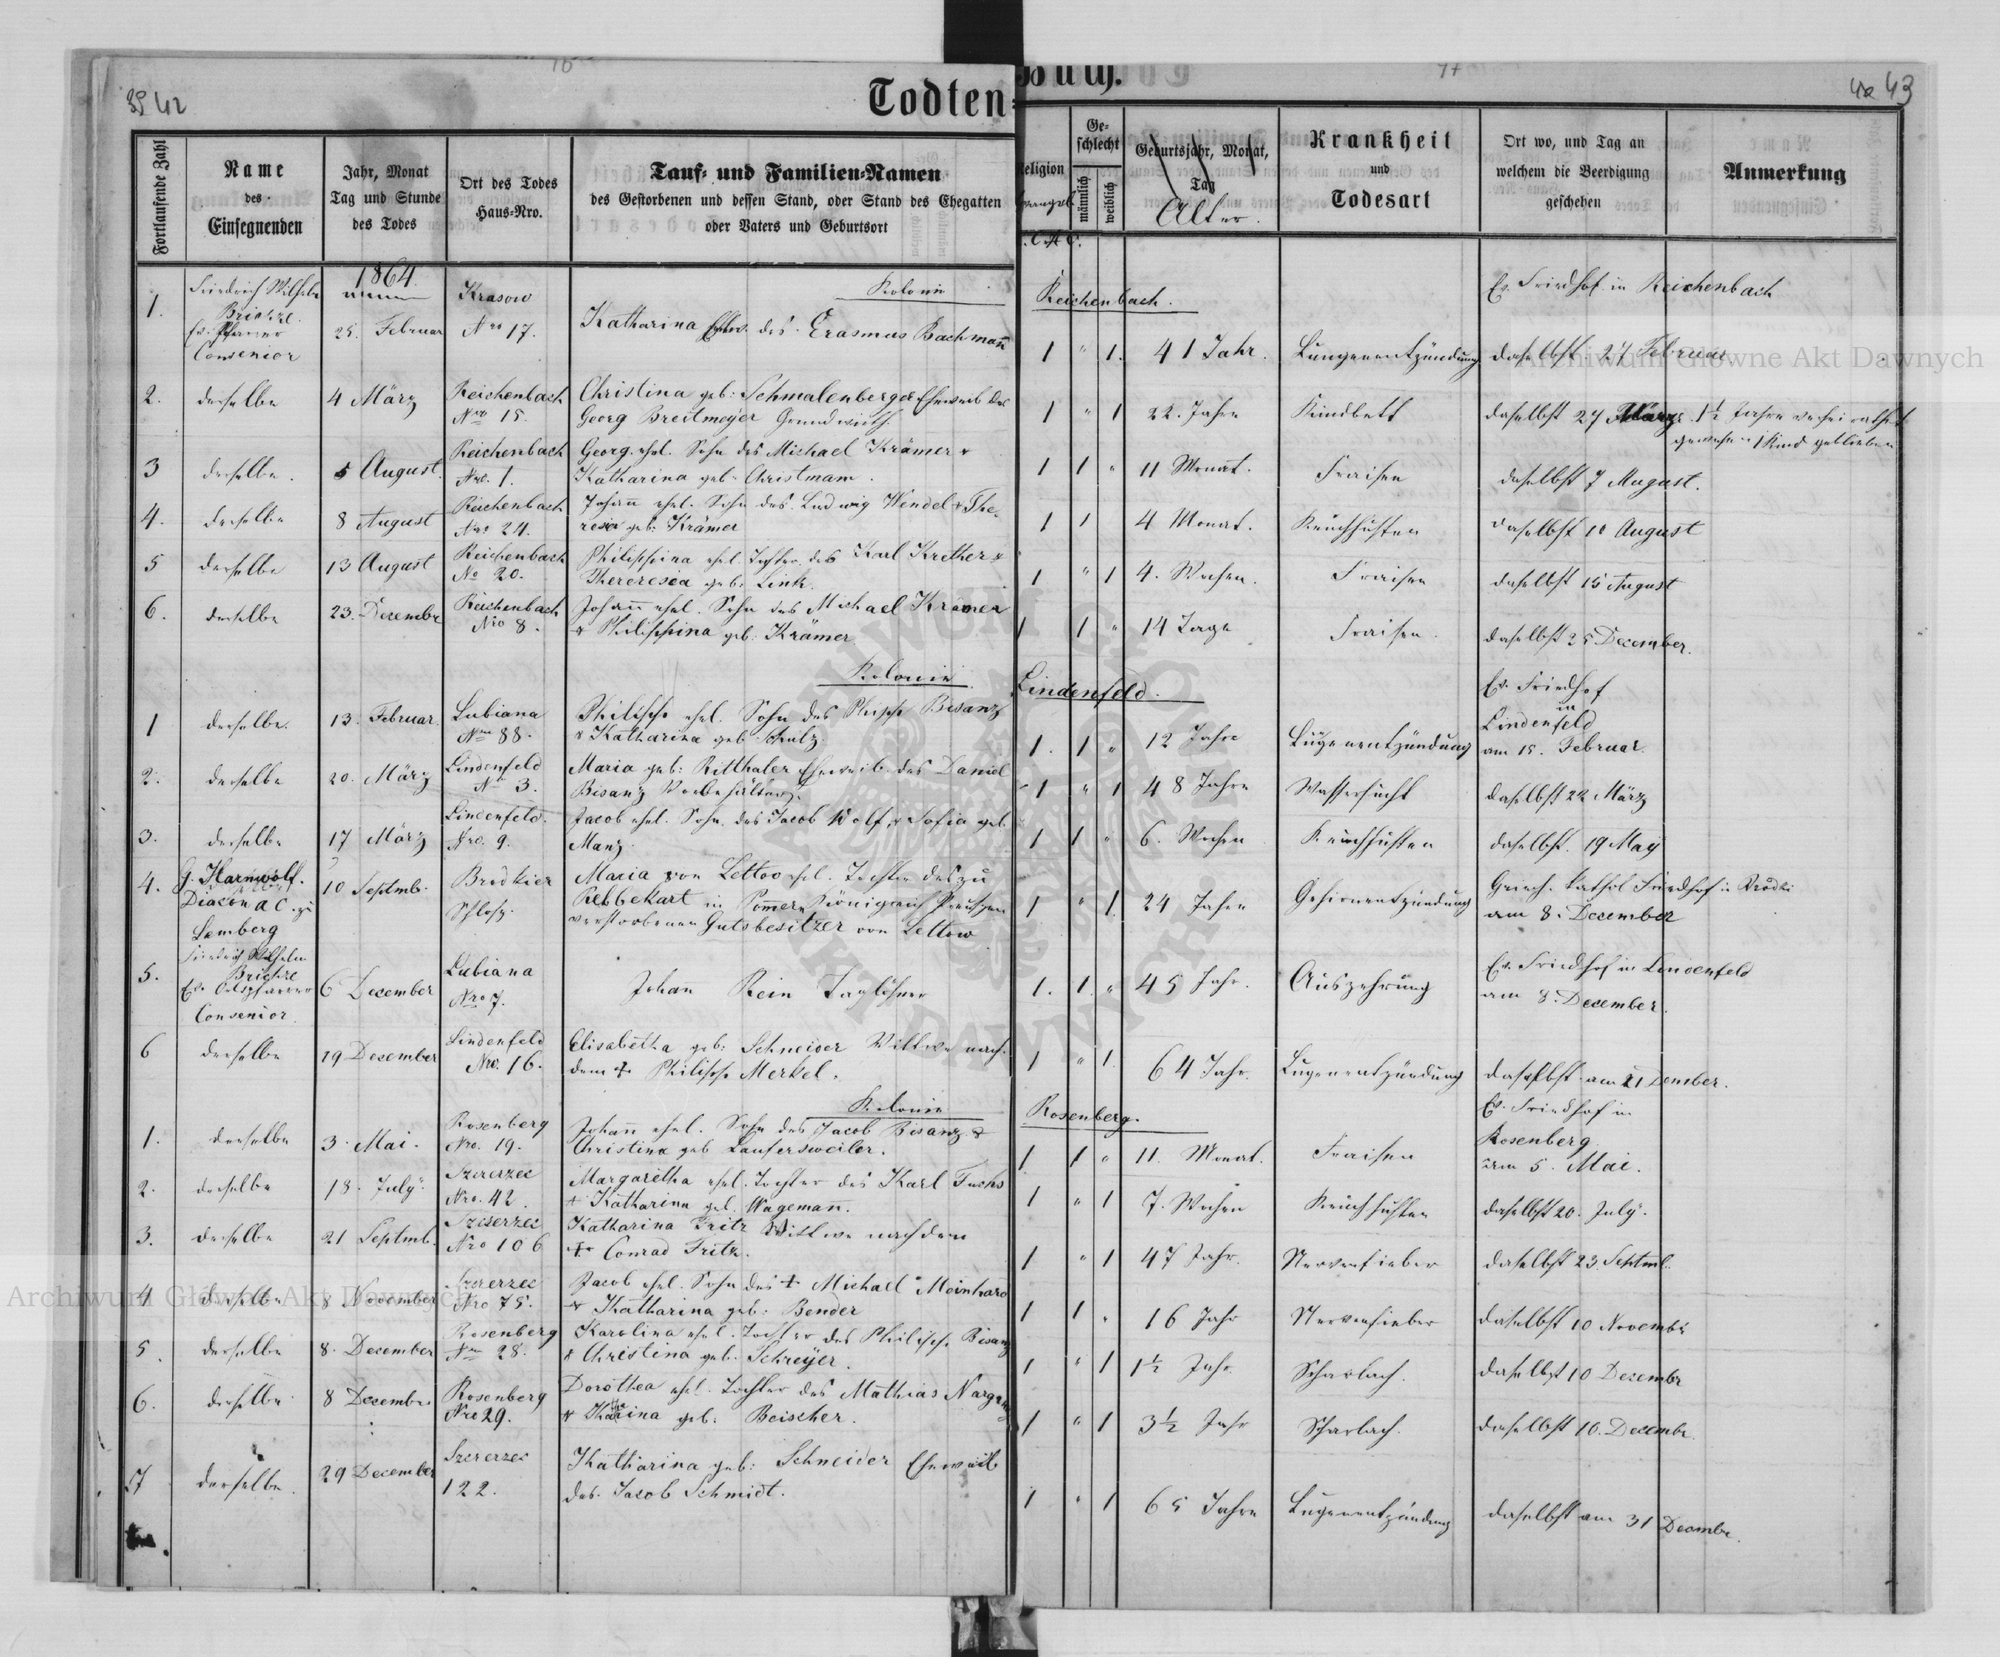 42
Todten-
Buch.
43
Fortlaufende Zahl
Name
des
Einsegnenden
Jahr, Monat
Tag und Stunde
des Todes
Ort des Todes
Haus-Nro.
Tauf- und Familien-Namen
des Gestorbenen und dessen Stand, oder Stand des Ehegatten
oder Vaters und Geburtsort
Religion
Ge-
schlecht
männlich
weiblich
Geburtsjahr, Monat,
Tag
Alter.
Krankheit
und
Todesart
Ort wo, und Tag an
welchem die Beerdigung
geschehen
Anmerkung
1864
Kolonie
Reichenbach.
Ev. Friedhof in Reichenbach
1.
Friedrich Wilhelm
Ev. Pfarrer
Consenior
25. Februar
Krasow
Nro 17.
Katharina Ehew. des Erasmus Bachmann
1 " 1. 41 Jahr. Lungenentzündung daselbst 27 Februar
2. derselbe 4 März Reichenbach
Nro 15.
Christina geb: Schmalenberger Eheweib des
Georg Breitmeyer Grundwirth.
1 " 1 22. Jahre Kindbett daselbst 27 März. 1½ Jahre verheirathet
gewesen 1 Kind geblieben
3 derselbe. 5 August. Reichenbach
Nro. 1.
Georg ehel. Sohn des Michael Krämer &
Katharina geb. Christmann.
1 1 " 11 Monat. Fraisen daselbst 7 August.
4. derselbe 8 August Reichenbach
Nro 24.
Johann ehel. Sohn des Ludwig Wendel & The-
resia geb: Krämer
1 1 4 Monat. Keuchhusten daselbst 10 August
5 derselbe 13 August Reichenbach
No 20.
Philippina ehel. Tochter des Karl Krether &
Thereresia geb: Link.
1 " 1 4. Wochen. Fraisen daselbst 15 August
6. derselbe 23. Dezembr Reichenbach
Nro 8.
Johann ehel. Sohn des Michael Krämer
& Philippina geb: Krämer
1 1 " 14 Tage Fraisen. daselbst 25 December.
Kolonie
Lindenfeld.
Ev. Friedhof
in
Lindenfeld
am 15. Februar.
1 derselbe. 13. Februar. Lubiana
Nro 88.
Philipp ehel. Sohn des Philipp Bisanz
& Katharina geb. Schulz
1. 1 " 12 Jahre Lungenentzündung
2. derselbe 20. März Lindenfeld
No 3.
Maria geb: Ritthaler Eheweib des Daniel
Bisanz
1 " 1 48 Jahre Wassersucht daselbst 22 März
3. derselbe 17 März Lindenfeld.
Nro. 9.
Jacob ehel. Sohn des Jacob Wolf & Sofia geb.
Manz.
1 1 " 6. Wochen Keuchhusten daselbst. 19 May
4. G. Harnwolf.
Diacon A C. zu
Lemberg
10 Septmb. Brodkier
Schloss.
Maria von Lettow ehel. Tochter des zu
in Pommern Königreich Preussen
verstorbenen Gutsbesitzer von Lettow
1 " 1. 24 Jahre Gehirnentzündung Griech. kathol Friedhof in
am 8. December
5. Friedrich Wilhelm
Ev. Ortspfarrer
Consenior
6 December Lubiana
Nro 7.
Johan Rein Taglöhner
1. 1 " 45 Jahr. Auszehrung Ev. Friedhof in Lindenfeld
am 8. December.
6 derselbe 19 December Lindenfeld
Nro. 16.
Elisabetha geb: Schneider Wittwe nach
dem † Philipp Merkel.
1 " 1. 64 Jahr. Lungenentzündung daselbst am 21 Dember.
Kolonie
Rosenberg.
Ev. Friedhof in
Rosenberg.
am 5. Mai.
1. derselbe 3. Mai. Rosenberg
Nro. 19.
Johann ehel. Sohn des Jacob Bisanz &
Christina geb Laufersweiler.
1. 1 " 11. Monat. Fraisen
2. derselbe 18. July. Szczerzec
Nro. 42
Margaretha ehel. Tochter des Karl Fuchs
& Katharina geb. Wagemann.
1 " 1 7. Wochen Keuchhusten daselbst 20. July.
3. derselbe 21 Septmb. Szczerzec
Nro 106
Katharina Fritz Wittwe nach dem
† Conrad Fritz.
1 " 1 47 Jahr. Nervenfieber daselbst 23. Septmb.
4 derselbe 8 November Szczerzec
Nro 75.
Jacob ehel. Sohn des † Michael Meinhard
& Katharina geb: Bender
1 1 " 16 Jahr Nervenfieber daselbst 10 Novembr
5. derselbe 8. December Rosenberg
Nro 28.
Karolina ehel. Tochter des Philipp Bisanz
& Christina geb. Schreyer.
1 " 1 1½ Jahr. Scharlach. daselbst 10 Dezembr
6. derselbe 8 Decembr. Rosenberg
Nro 29.
Dorothea ehel. Tochter des Mathias
& Katharina geb: Beischer.
1 " 1 3½ Jahr Scharlach. daselbst 10. Decembr.
7 derselbe. 29 December Szczerzec
122.
Katharina geb: Schneider Eheweib
des Jacob Schmidt.
1 " 1 65 Jahre Lungenentzündung daselbst am 31 Decembr.
Archiwum Główne Akt Dawnych
Archiwum Główne Akt Dawnych